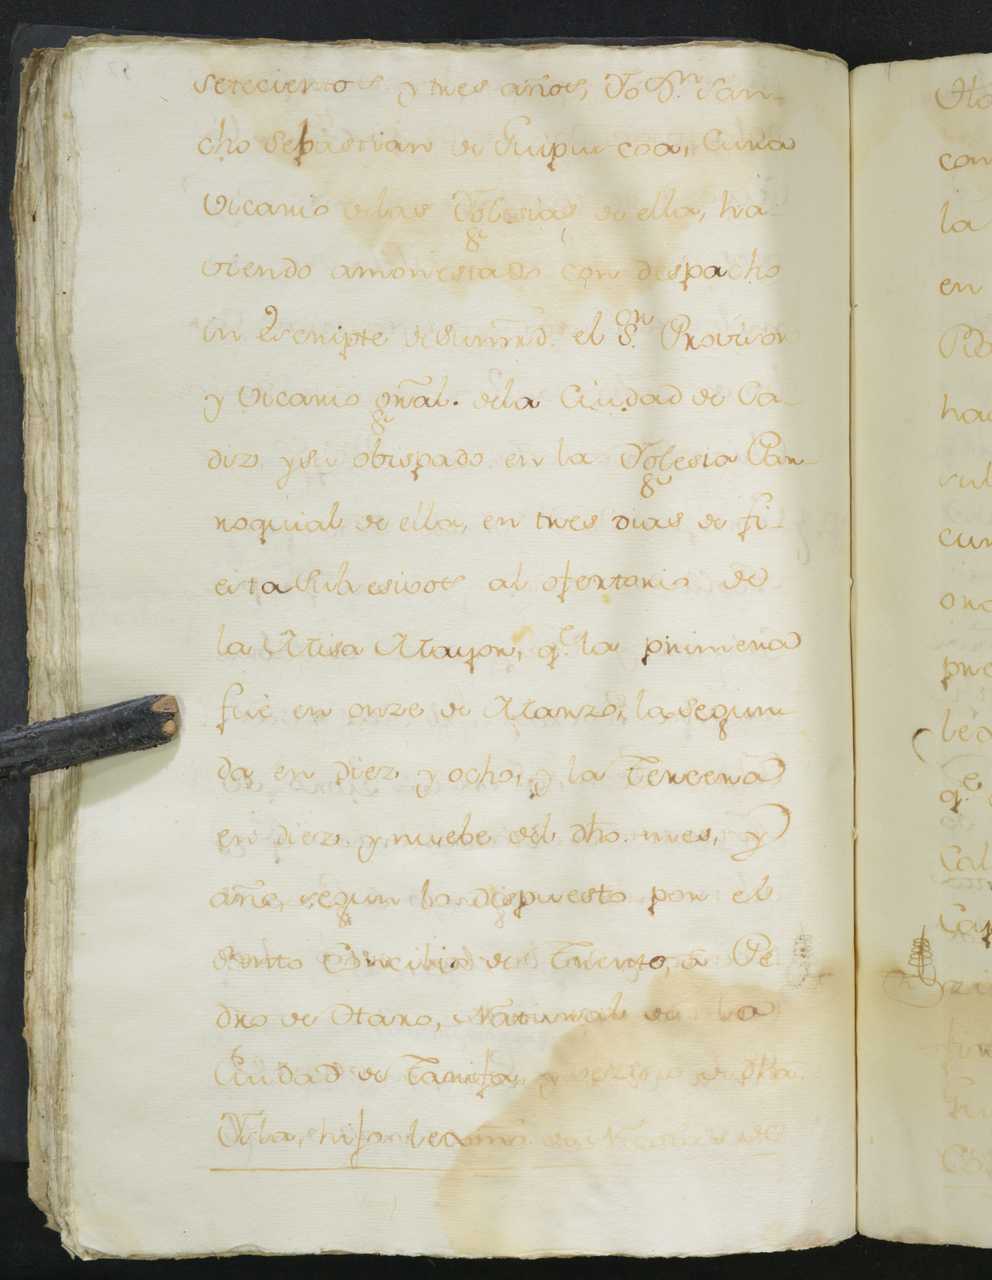 setecientos y tres años, Yo Dn. San-
cho Sebastian de Guipuscoa, Cura
Vicario de las Yglesias de ella, ha-
viendo amonestado con despacho
in Escripte de su mrd. el Sr. Provisor
y Vicario gñal. de la Ciudad de Ca-
diz y su obispado en la Yglesia Par-
roquial de ella, en tres dias de fi-
esta subcesivos al ofertorio de
la Misa Mayor, q.e la primera
fué en onze de Marzo, la segun-
da en diez y ocho, y la Tercera
en diez y nuebe del dho. mes, y
año, segun lo dispuesto por el
Santo Concilio de Trento, a Pe-
dro de Otaro, Natural de la
Ciudad de Tarifa, y vezino de dha.
Villa, hijo de
Oto
con
la
en
ha
cun
ono
pre
q.e
Cal